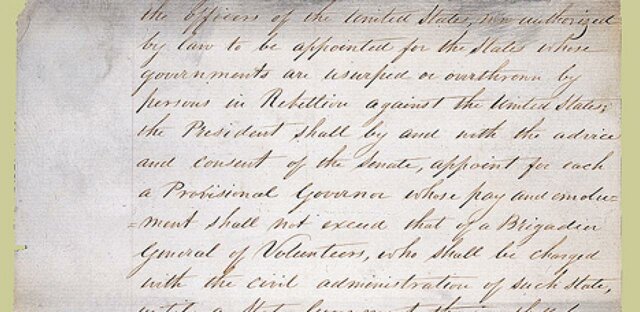 the officers of the United States, now authorized
by law to be appointed for the States whose
governments are usurped or overthrown by
persons in Rebellion against the United States;
the President shall by and with the advice
and consent of the Senate, appoint for each
a Provisional Governor whose pay and emolu=
=ment shall not exceed that of a Brigadier
General of Volunteers, who shall be charged
with the civil administration of such State,
until a State Government therein shall be